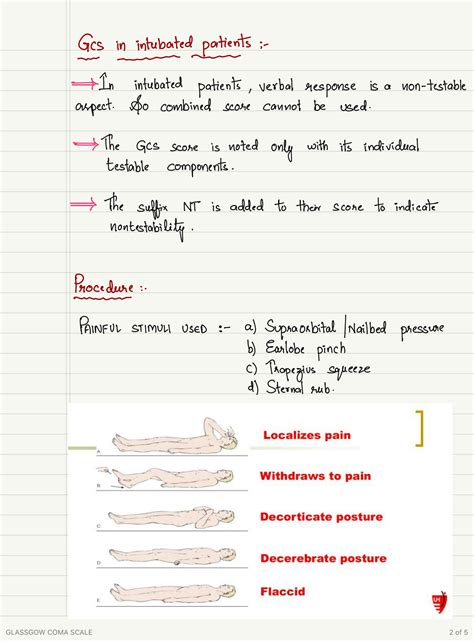 Gcs in intubated patients :-
⟹ In intubated patients, verbal response is a non-testable
aspect. So combined score cannot be used.
⟹ The Gcs score is noted only with its individual
testable components.
⟹ The suffix NT is added to their score to indicate
nontestability.
Procedure :-
PAINFUL STIMULI USED :- a) Supraorbital / Nailbed pressure
b) Earlobe pinch
c) Trapezius squeeze
d) Sternal rub.
A Localizes pain
B Withdraws to pain
C Decorticate posture
D Decerebrate posture
E Flaccid
GLASSGOW COMA SCALE 2 of 5